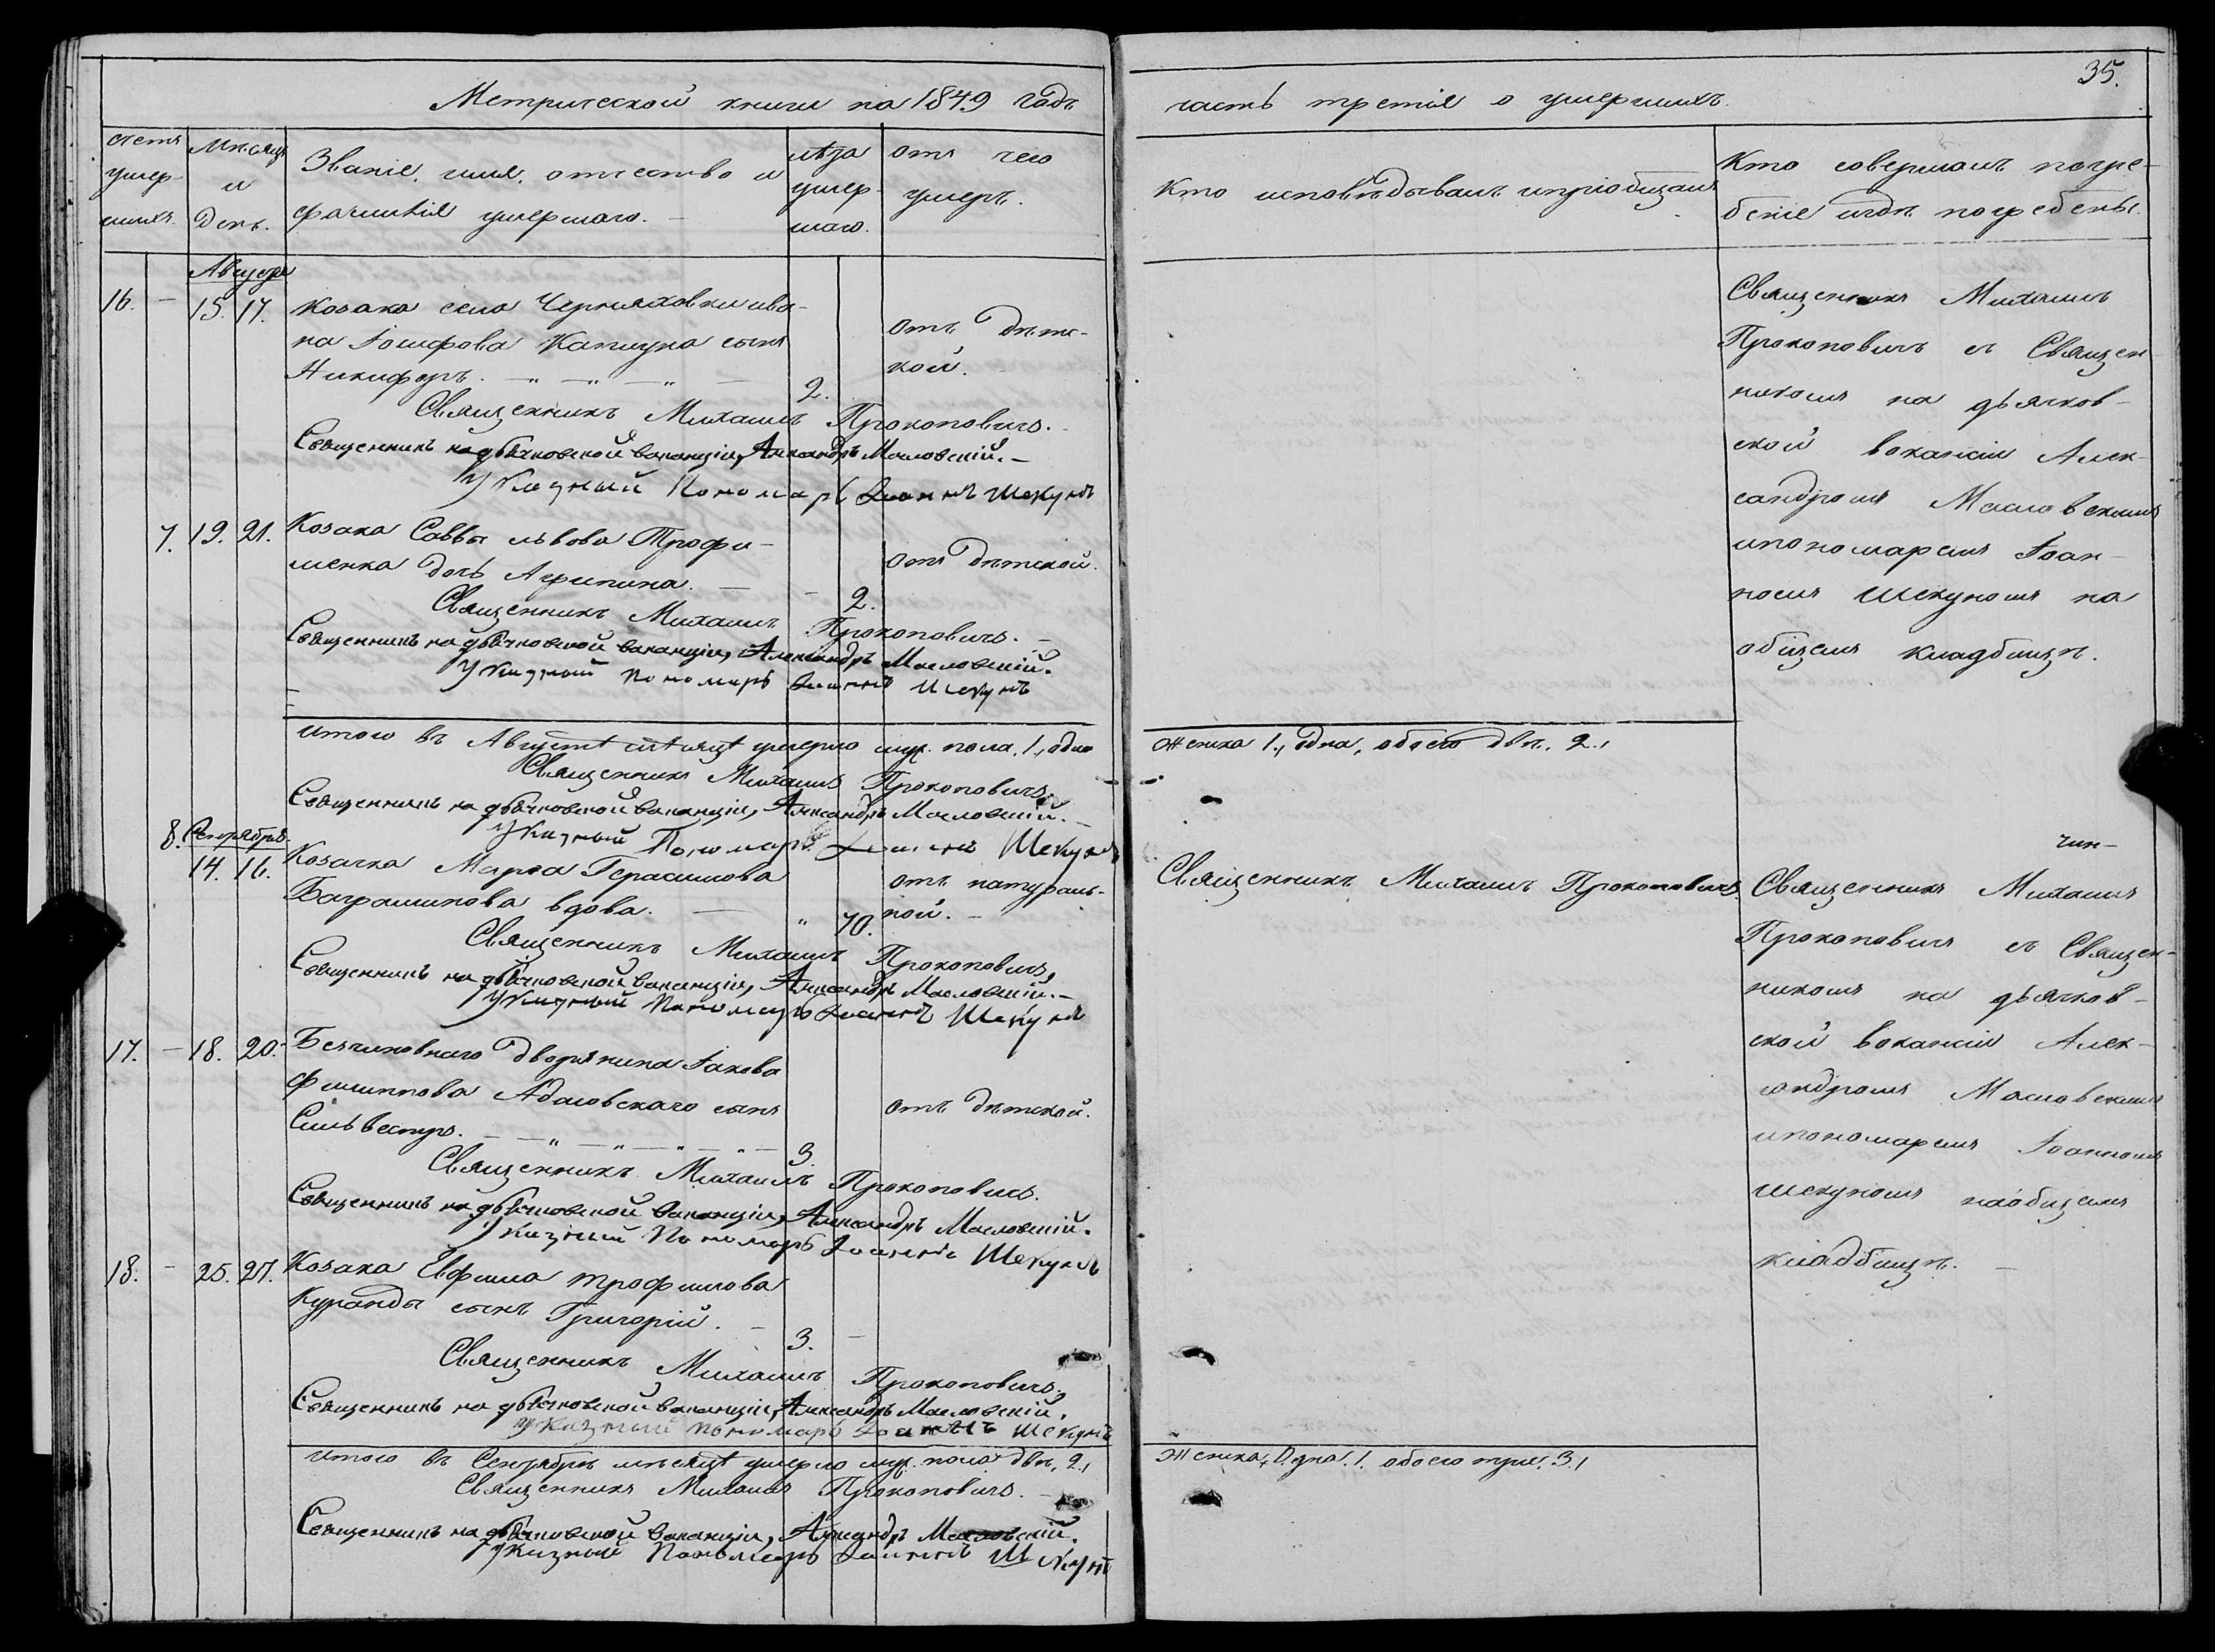 Метрической книги на 1849 годъ
часть третія о умершихъ.
35.
счетъ умер-шихъ.
Мѣсяцъ и день.
Званіе, имя, отчество и
фамилія умершаго.
лѣта умер-шаго.
отъ чего
умеръ.
Кто исповѣдывалъ и пріобщалъ
Кто совершалъ погре-
беніе и гдѣ погребены.
Августъ
16. — 15. 17. Козака села Черняховки ива-
на Іосифова Капшука сынъ
Никифоръ. 2.
отъ дѣтс-
кой.
Священникъ Михаилъ Прокоповичъ.
Священникъ на дьячковской вакансіи, Александръ Масловскій.
Указный Пономарь Іоаннъ Шекунъ
Священникъ Михаилъ
Прокоповичъ съ Священ-
никомъ на дьячков-
ской вакансіи Алек-
сандромъ Масловскимъ
и пономаремъ Іоан-
номъ Шекуномъ на
общемъ кладбищѣ.
7. 19. 21. Козака Саввы львова Трофи-
менка дочь Агрипина. 2.
отъ дѣтской.
Священникъ Михаилъ Прокоповичъ.
Священникъ на дьячковской вакансіи, Александръ Масловскій.
Указный Пономарь Іоаннъ Шекунъ
итого въ Августѣ мѣсяцѣ умерло муж. пола. 1, одно
женска 1, одна, обоего двѣ. 2.
Священникъ Михаилъ Прокоповичъ
Священникъ на дьячковской вакансіи, Александръ Масловскій.
Указный Пономарь Іоаннъ Шекунъ
Сентября
8. 14. 16. Козачка Марѳа Герасимова
Баграшинова вдова. 70.
отъ натураль-
ной.
Священникъ Михаилъ Прокоповичъ.
Священникъ Михаилъ Прокоповичъ,
Священникъ на дьячковской вакансіи, Александръ Масловскій.
Указный Пономарь Іоаннъ Шекунъ
Священникъ Михаилъ
Прокоповичъ съ Священ-
никомъ на дьячков-
ской вакансіи Алек-
сандромъ Масловскимъ
и пономаремъ Іоанномъ
Шекуномъ на общемъ
кладбищѣ.
17. — 18. 20. Безчиновнаго дворянина Іакова
Филиппова Адасовскаго сынъ
Сильвестръ. 3.
отъ дѣтской.
Священникъ Михаилъ Прокоповичъ.
Священникъ на дьячковской вакансіи, Александръ Масловскій.
Указный Пономарь Іоаннъ Шекунъ
18. — 25. 27. Козака Евфима трофимова
Куранды сынъ Григорій. 3.
Священникъ Михаилъ Прокоповичъ.
Священникъ на дьячковской вакансіи, Александръ Масловскій.
Указный Пономарь Іоаннъ Шекунъ
итого въ Сентябрѣ мѣсяцѣ умерло муж. пола двѣ, 2,
женска, Одна. 1. обоего три. 3,
Священникъ Михаилъ Прокоповичъ.
Священникъ на дьячковской вакансіи, Александръ Масловскій.
Указный Пономарь Іоаннъ Шекунъ